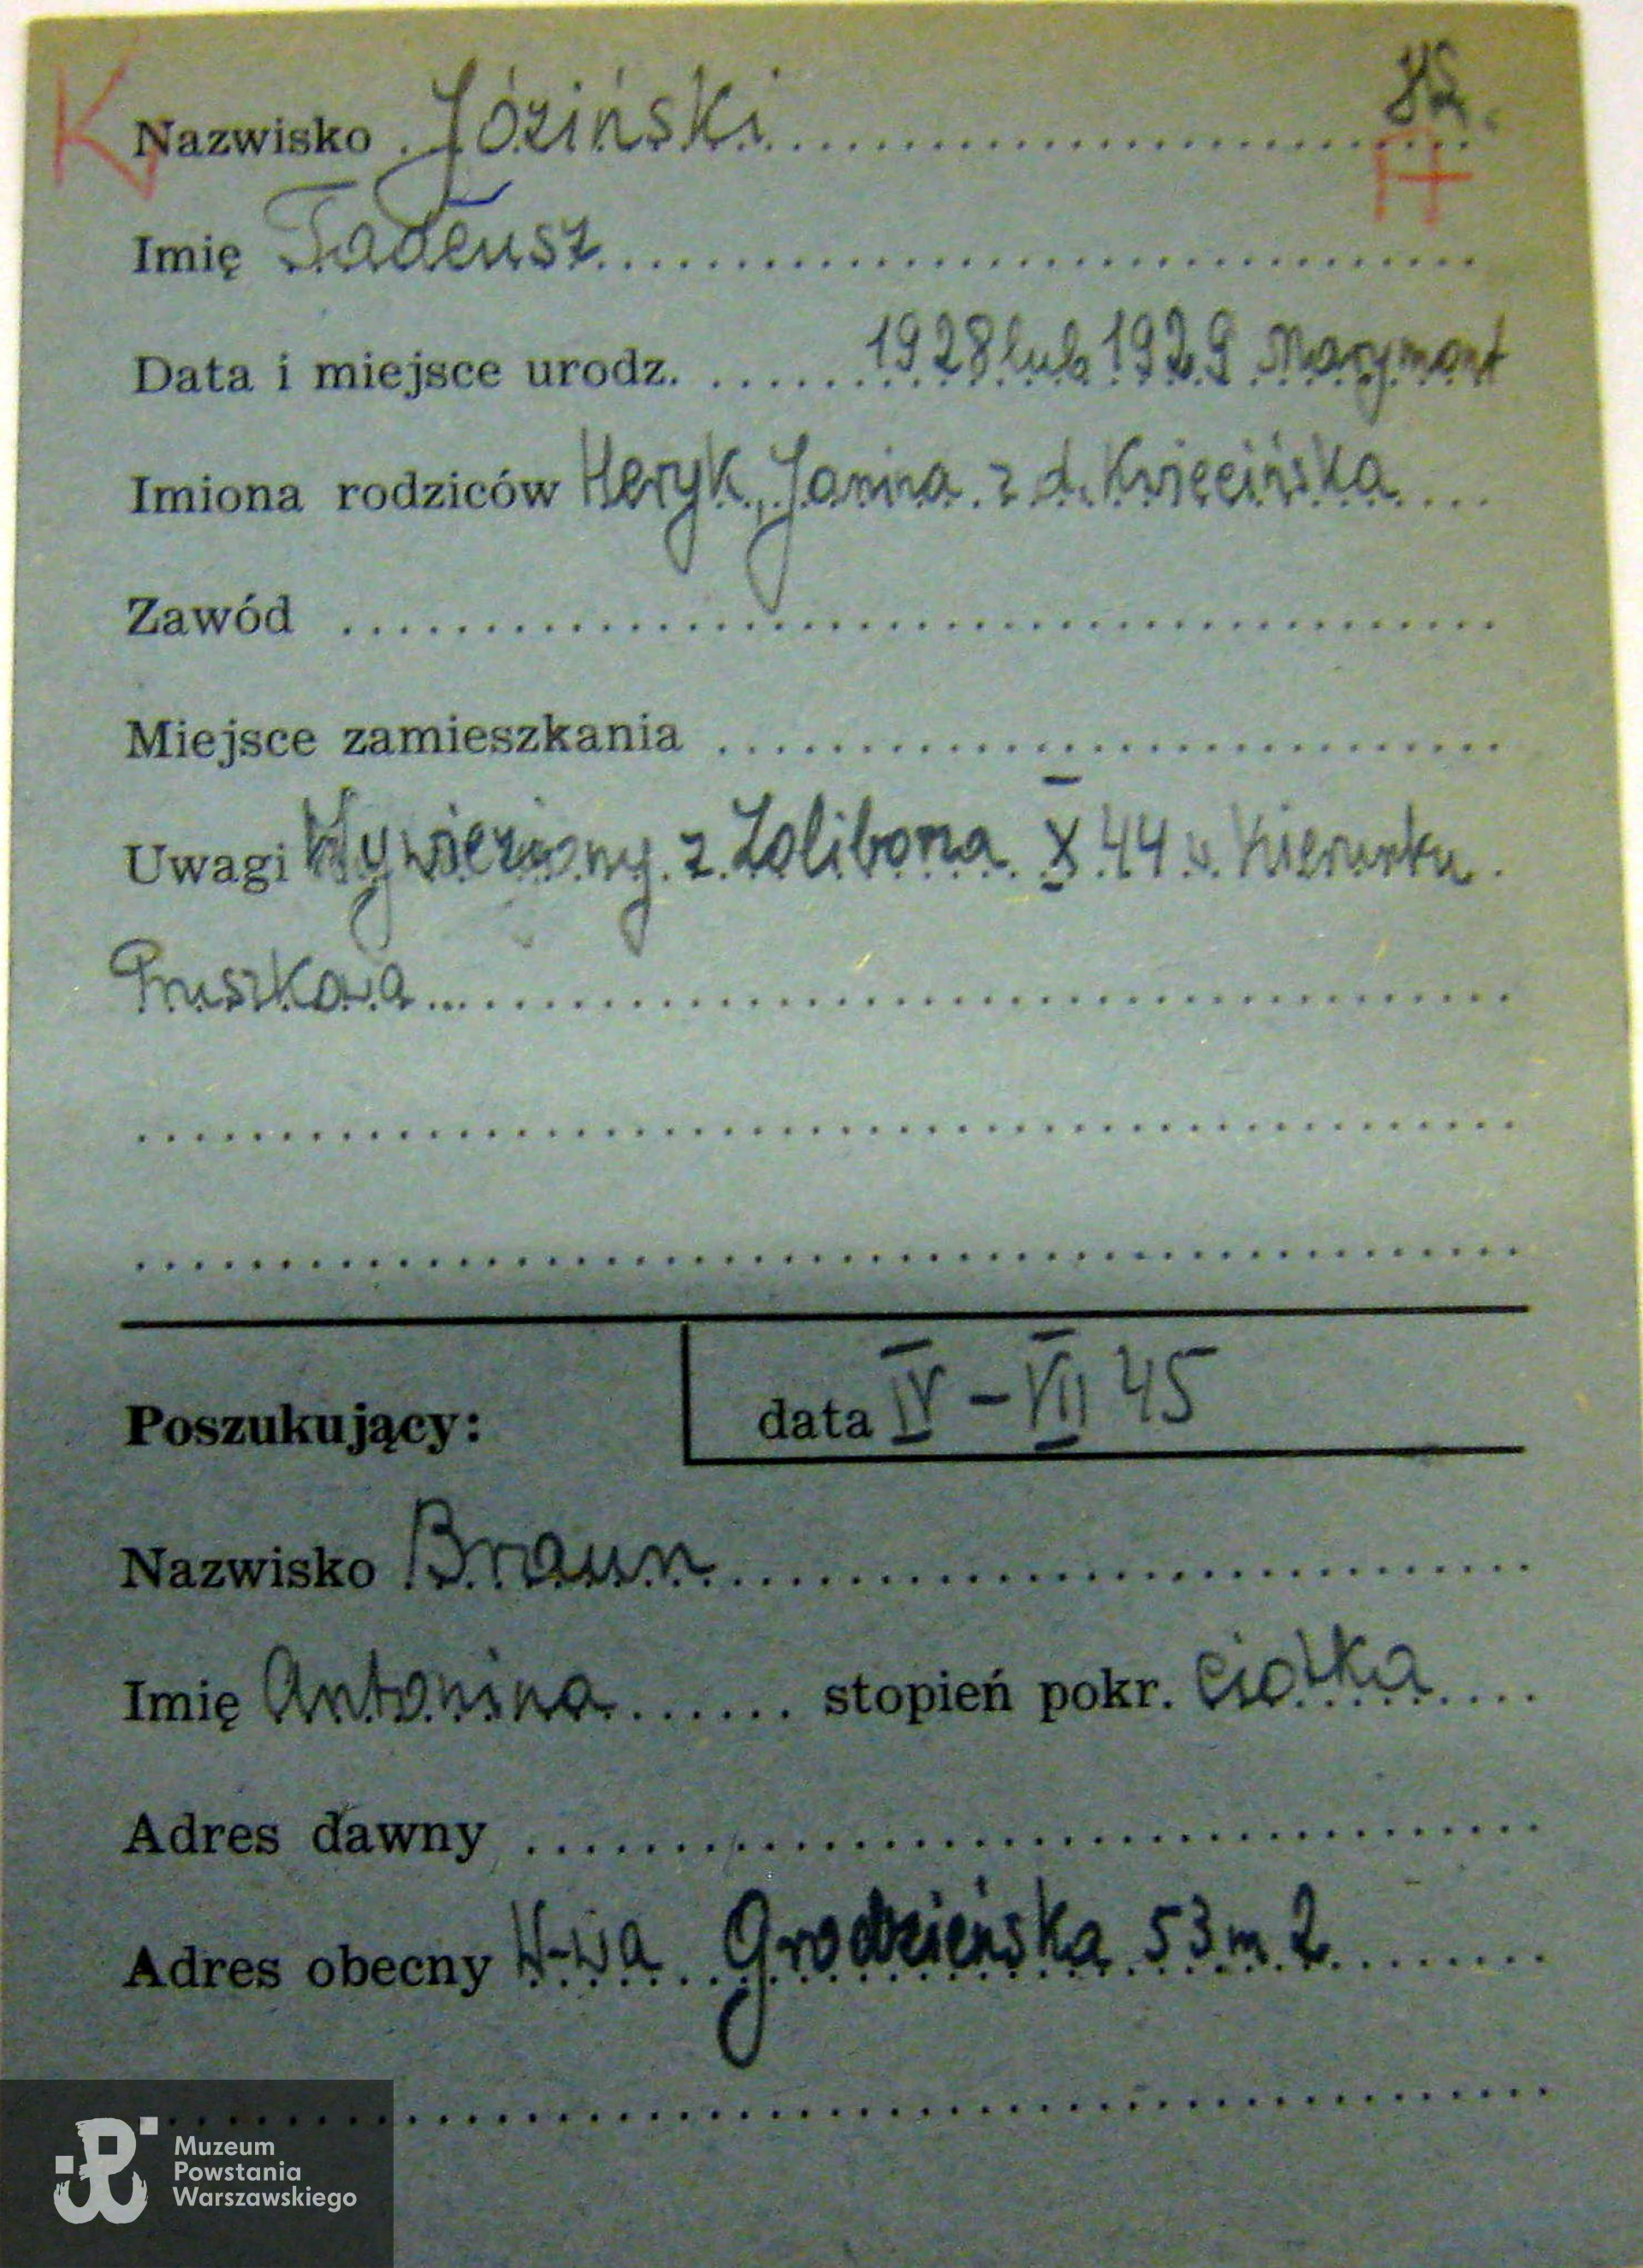 K
Nazwisko Józiński
H
Imię Tadeusz
Data i miejsce urodz. 1928 lub 1929 Marymont
Imiona rodziców Heryk, Janina z d. Kwiecińska
Zawód
Miejsce zamieszkania
Uwagi Wywieziony z Żoliborza X 44 w kierunku
Pruszkowa
Poszukujący:
data IV - VII 45
Nazwisko Braun
Imię Antonina stopień pokr. ciotka
Adres dawny
Adres obecny W-wa Grodzieńska 53 m 2
Muzeum
Powstania
Warszawskiego